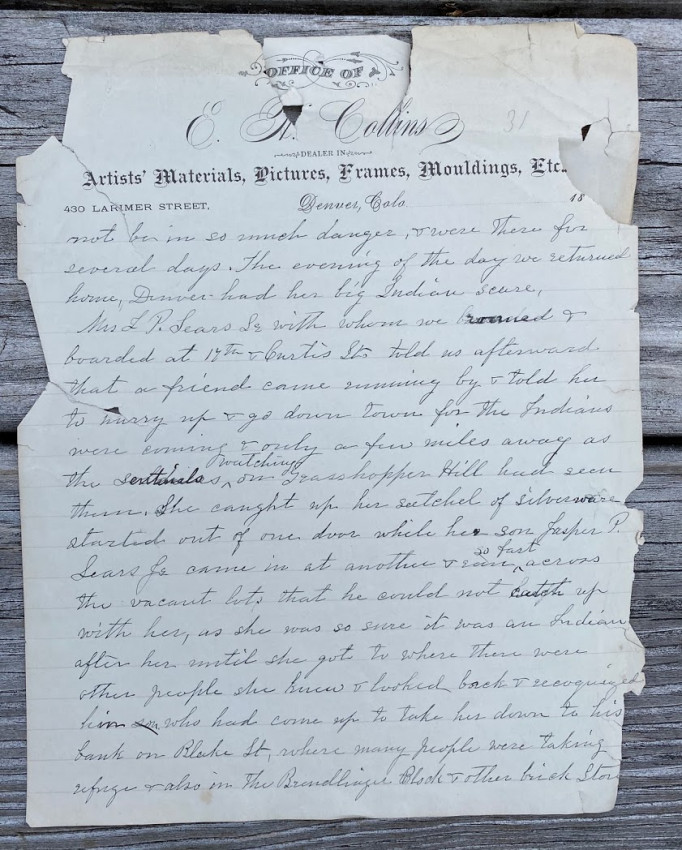 OFFICE OF
E. K. Collins
31
DEALER IN
Artists' Materials, Pictures, Frames, Mouldings, Etc.
430 LARIMER STREET,
Denver, Colo. 18
not be in so much danger, & were there for
several days. The evening of the day we returned
home, Denver had her big Indian scare,
Mrs L P. Sears Sr with whom we roomed &
boarded at 17th & Curtis Sts told us afterward
that a friend came running by & told her
to hurry up & go down town for the Indians
were coming & only a few miles away as
watching
the sentinels on Grasshopper Hill had seen
them. She caught up her satchel of silverware
started out of one door while her son Jasper P.
so fast
Sears Jr came in at another & ran across
the vacant lots that he could not catch up
with her, as she was so sure it was an Indian
after her until she got to where there were
other people she knew & looked back & recognized
him who had come up to take her down to his
bank on Blake St, where many people were taking
refuge & also in the Brendlinger Block & other brick Stor